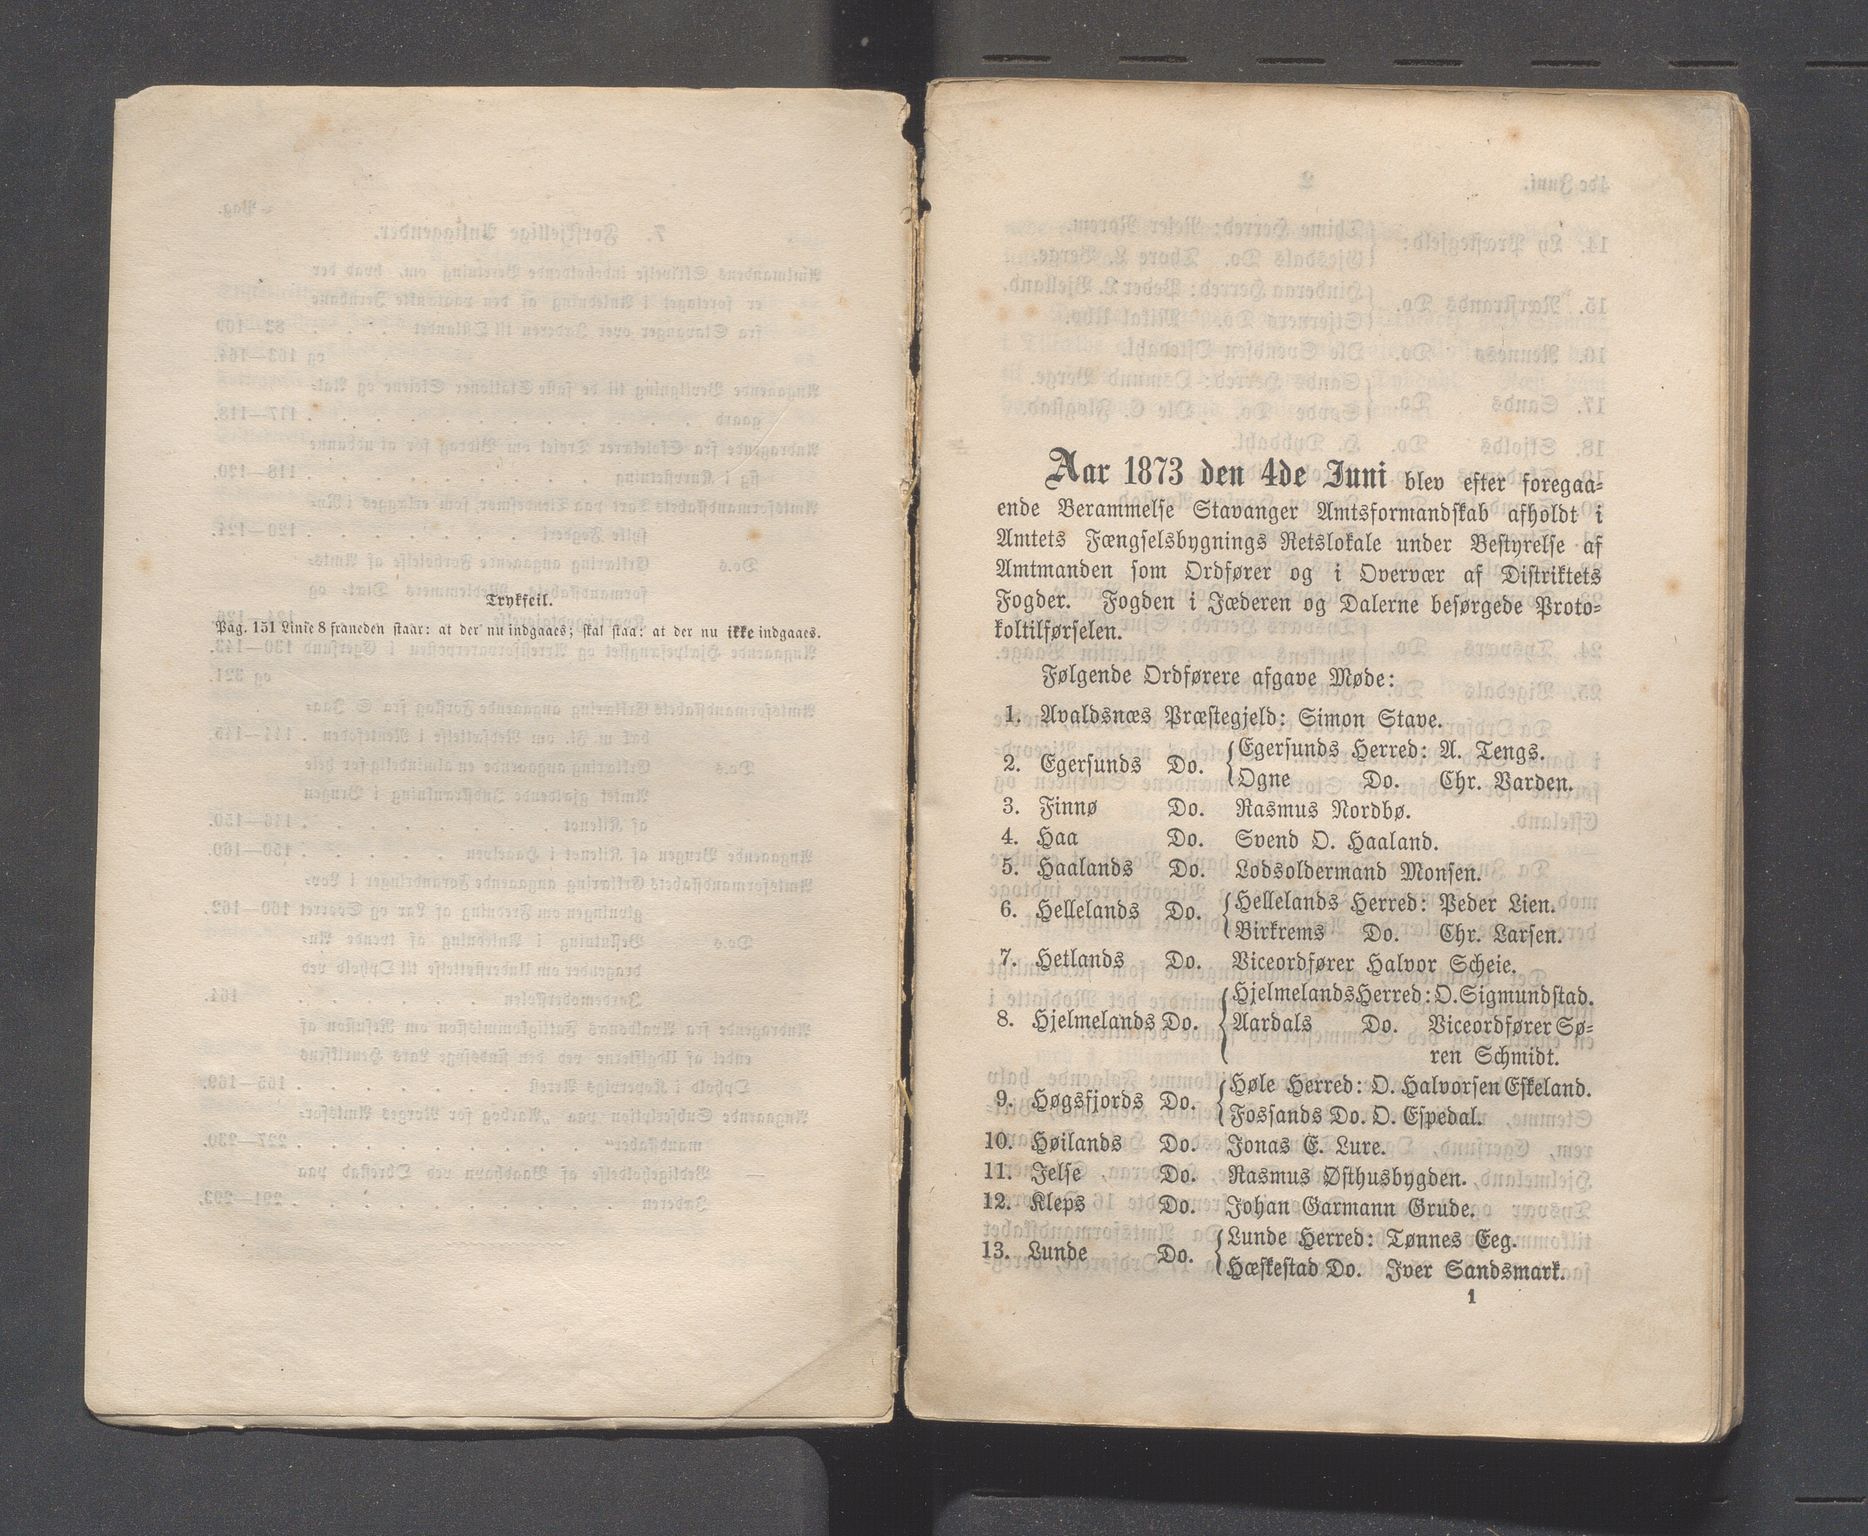 Trykfeil.
Pag. 151 Linie 8 franeden staar: at der nu indgaaes; skal staa: at der nu ikke indgaaes.
Aar 1873 den 4de Juni blev efter foregaa-
ende Berammelse Stavanger Amtsformandskab afholdt i
Amtets Fængselsbygnings Retslokale under Bestyrelse af
Amtmanden som Ordfører og i Overvær af Distriktets
Fogder. Fogden i Jæderen og Dalerne besørgede Proto-
koltilførselen.
Følgende Ordførere afgave Møde:
1. Avaldsnæs Præstegjeld: Simon Stave.
2. Egersunds Do. { Egersunds Herred: A. Tengs.
Ogne Do. Chr. Varden.
3. Finnø Do. Rasmus Nordbø.
4. Haa Do. Svend O. Haaland.
5. Haalands Do. Lodsoldermand Monsen.
6. Hellelands Do. { Hellelands Herred: Peder Lien.
Birkrems Do. Chr. Larsen.
7. Hetlands Do. Viceordfører Halvor Scheie.
8. Hjelmelands Do. { Hjelmelands Herred: O. Sigmundstad.
Aardals Do. Viceordfører Sø-
ren Schmidt.
9. Høgsfjords Do. { Høle Herred: O. Halvorsen Eskeland.
Fossands Do. O. Espedal.
10. Høilands Do. Jonas E. Lure.
11. Jelse Do. Rasmus Østhusbygden.
12. Kleps Do. Johan Garmann Grude.
13. Lunde Do. { Lunde Herred: Tønnes Eeg.
Hæskestad Do. Iver Sandsmark.
1